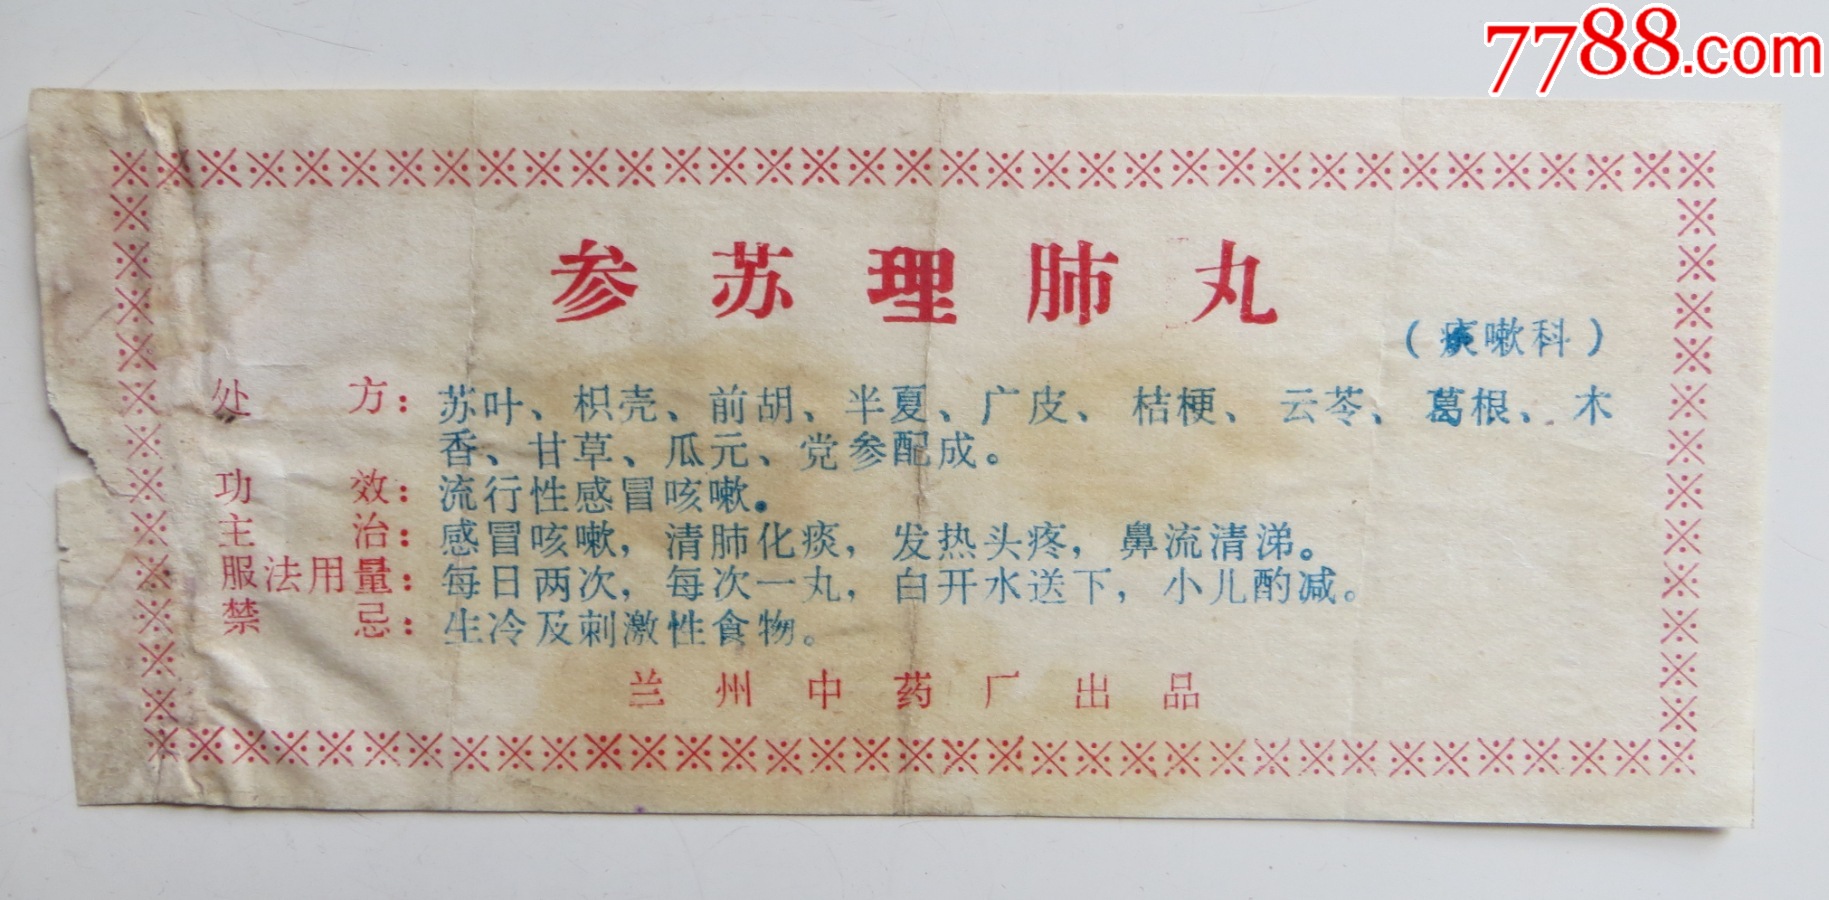 7788.com
参苏理肺丸
（痰嗽科）
处方：苏叶、枳壳、前胡、半夏、广皮、桔梗、云苓、葛根、木
香、甘草、瓜元、党参配成。
功效：流行性感冒咳嗽。
主治：感冒咳嗽，清肺化痰，发热头疼，鼻流清涕。
服法用量：每日两次，每次一丸，白开水送下，小儿酌减。
禁忌：生冷及刺激性食物。
兰州中药厂出品